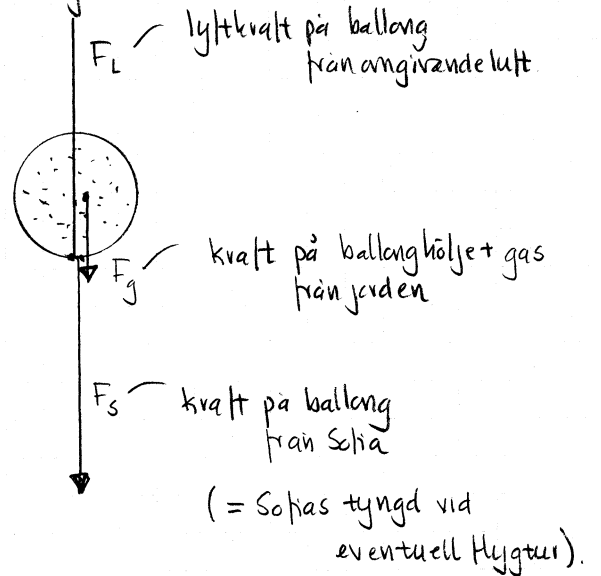 F_L
lyftkraft på ballong
från omgivande luft
F_g
kraft på ballonghölje + gas
från jorden
F_s
kraft på ballong
från Sofia
(= Sofias tyngd vid
eventuell flygtur).